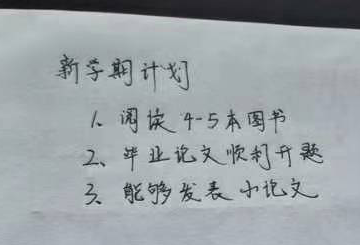 新学期计划
1、阅读4-5本图书
2、毕业论文顺利开题
3、能够发表小论文